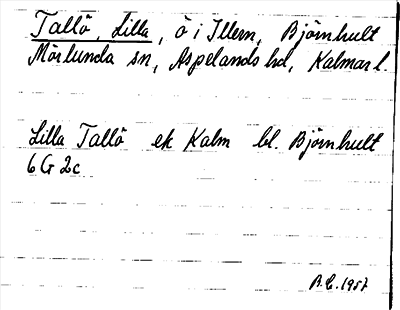 Tallö, Lilla, ö i Illern, Björnhult
Mörlunda sn, Aspelands hd, Kalmar l.
Lilla Tallö ek Kalm bl. Björnhult
6 G 2c
B.L. 1957